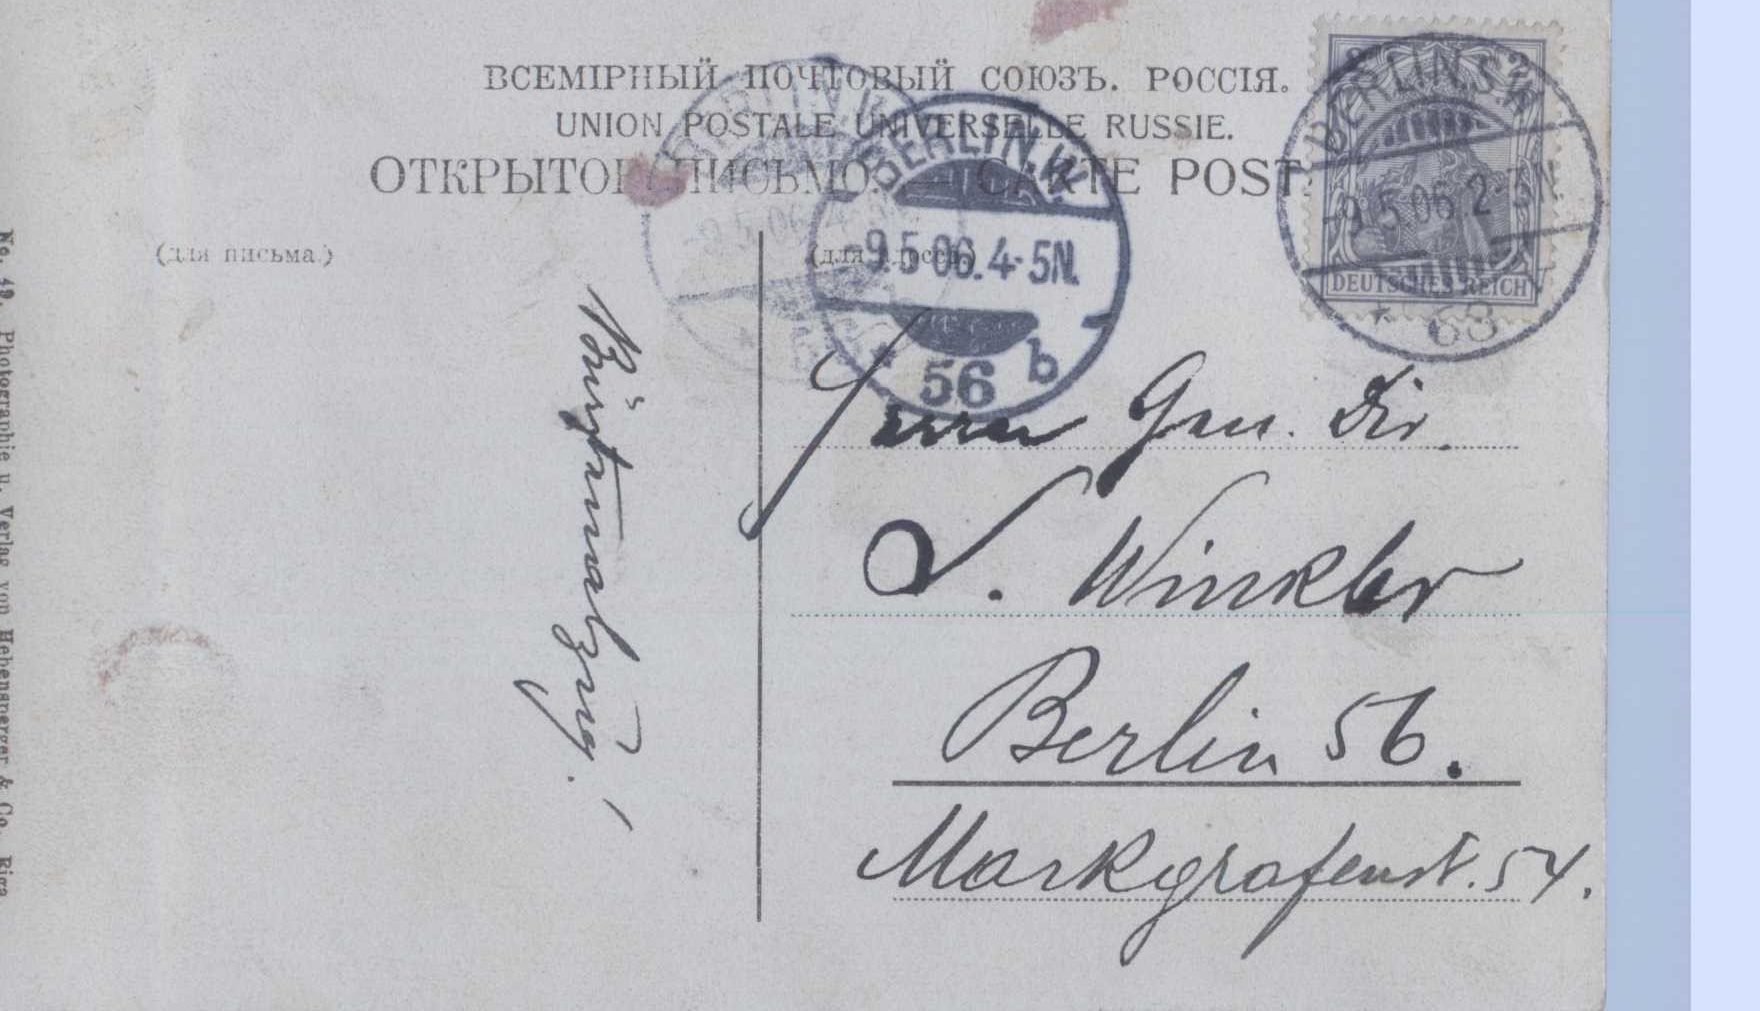 ВСЕМІРНЫЙ ПОЧТОВЫЙ СОЮЗЪ. РОССІЯ.
UNION POSTALE UNIVERSELLE RUSSIE.
ОТКРЫТОЕ ПИСЬМО. — CARTE POST
(для письма.)
(для адреса)
BERLIN.W
-9.5.06.4-5N.
56 b
BERLIN.S.W
-9.5.06.2-3N
* 68
DEUTSCHES REICH
BERLIN.W
-9.5.06.4
Herrn Gen. Dir.
S. Winkler
Berlin 56.
Markgrafenst. 54.
No. 49. Photographie u. Verlag von Hebensperger & Co. Riga